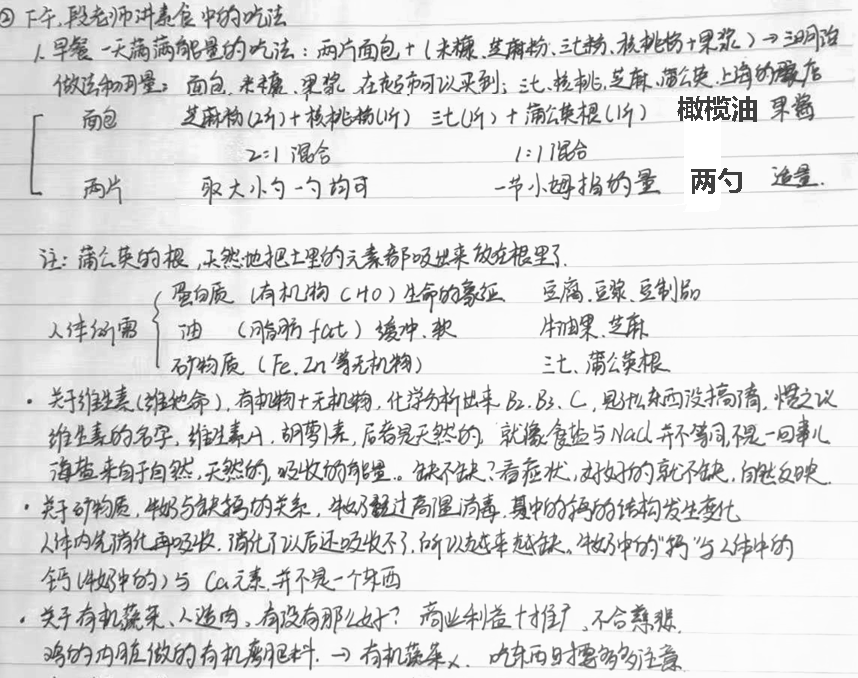 ② 下午,段老师讲素食中的吃法
1. 早餐 一天满满能量的吃法:两片面包+(米糠、芝麻粉、三七粉、核桃粉+果浆)→
做法和用量: 面包、米糠、果浆 在超市可以买到; 三七、核桃、芝麻、蒲公英、上海的店
面包 芝麻粉(2斤)+核桃粉(1斤) 三七(1斤)+蒲公英根(1斤) 橄榄油 果酱
2:1混合 1:1混合
两片 取大小勺一勺均可 一节小姆指的量 两勺 适量.
注: 蒲公英的根,天然地把土里的元素都吸出来放在根里了.
蛋白质 (有机物 CHO) 生命的象征 豆腐、豆浆、豆制品
人体所需 油 (脂肪 fat) 缓冲、软 牛油果、芝麻
矿物质 (Fe、Zn等无机物) 三七、蒲公英根
· 关于维生素(维他命),有机物+无机物,化学分析出来 B2、B3、C,是什么东西没搞清,惯之以
维生素的名字,维生素A,胡萝卜素,后者是天然的,就像食盐与NaCl并不等同,不是一回事儿
海盐来自于自然,天然的,吸收的能量。缺不缺?看症状,好好的就不缺,自然反映.
· 关于矿物质,牛奶与缺钙的关系,牛奶经过高温消毒,其中的钙的结构发生变化
人体内先消化再吸收,消化了以后还吸收不了,所以越来越缺。牛奶中的"钙"与人体中的
钙(牛奶中的)与 Ca元素,并不是一个东西
· 关于有机蔬菜、人造肉、有没有那么好? 商业利益+推广,不合慈悲.
鸡的内脏做的有机肥料.→有机蔬菜x. 吃东西时要多多注意.